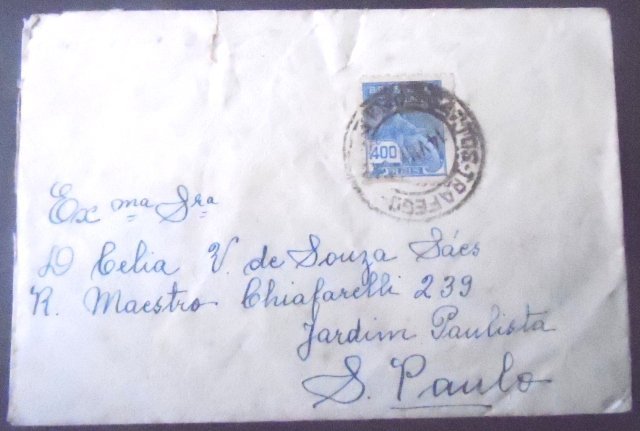 BRASIL
400
REIS
SANTOS TRAFEGO
Ex ma Sra
D Celia V. de Souza Sáes
R. Maestro Chiafarelli 239
Jardim Paulista
S. Paulo